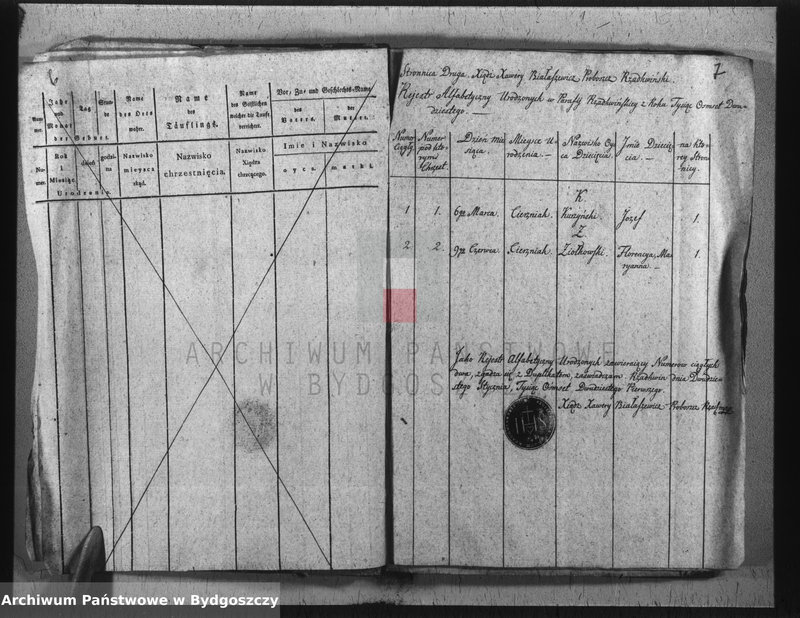 6
Jahr und Monat
Tag
Stunde
der Geburt.
Name des Orts
Name des Täuflings.
Name des Geistlichen welcher die Taufe verrichtet.
Vor- Zu- und Geschlechts-Name
des Vaters.
der Mutter.
Numer.
Rok i Miesiąc.
dzień
godzina
Urodzenia.
Nazwisko miejsca skąd.
Nazwisko chrzestnięcia.
Nazwisko Xiędza chrzcącego.
Imie i Nazwisko
oyca.
matki.
7
Stronnica Druga. Xiądz Xawery Białaszewicz Proboszcz Rządkwiński.
Rejestr Alfabetyczny Urodzonych w Parafij Rządkwińskiey z Roku Tysiąc Osmset Dwu-
dziestego. —
Numer Ciągły.
Numer pod którym Chrzest.
Dzień Miesiąca.
Mieysce Urodzenia. —
Nazwisko Oyca Dziecięcia.
Jmie Dziecięcia. —
na którey Stronicy.
K.
1 1. 6go Marca. Cierzniak. Kuczyński. Jozef 1.
Z.
2 2. 9go Czerwca. Cierzniak. Ziołkowski. Florencya, Ma-
ryanna. — 1.
Jako Rejestr Alfabetyczny Urodzonych zawieraiący Numerow ciągłych
dwa, zgadza się z Duplikatem, zaświadczam. Rządkwin dnia Dwudzie-
stego Stycznia, Tysiąc Osmset Dwudziestego Pierwszego.
Xiądz Xawery Białaszewicz Proboszcz Rządkwiń
IHS
ARCHIWUM PAŃSTWOWE
W BYDGOSZCZY
Archiwum Państwowe w Bydgoszczy